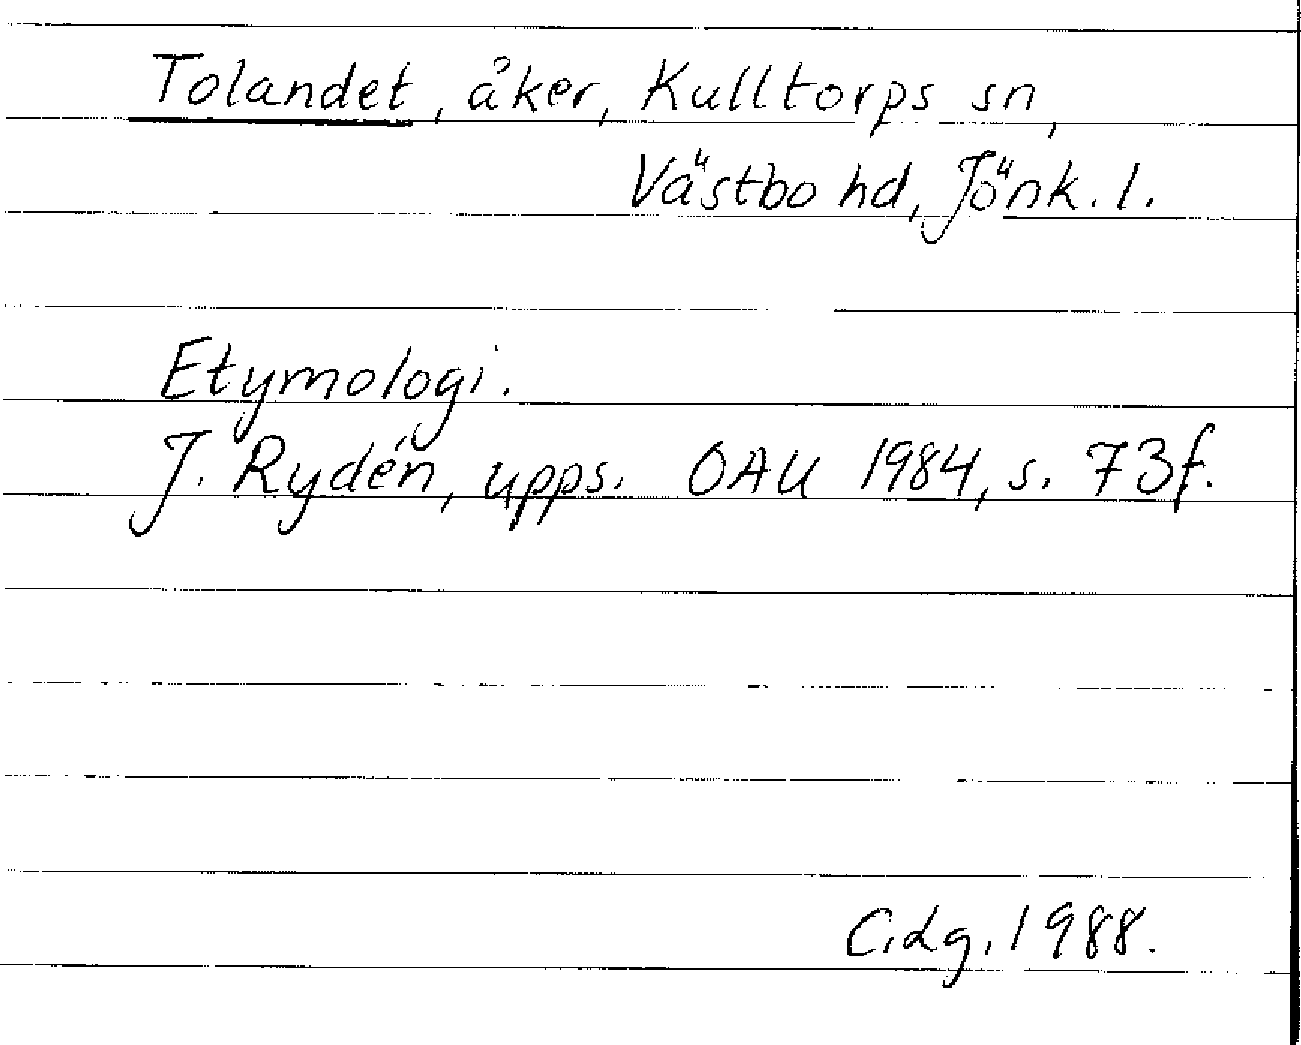 Tolandet, åker, Kulltorps sn,
Västbo hd, Jönk. l.
Etymologi.
J. Rydén, upps. OAU 1984, s. 73f.
C.dg. 1988.